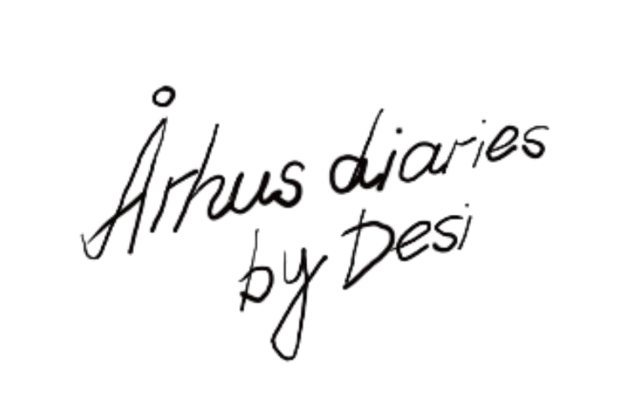 Århus diaries
by Desi